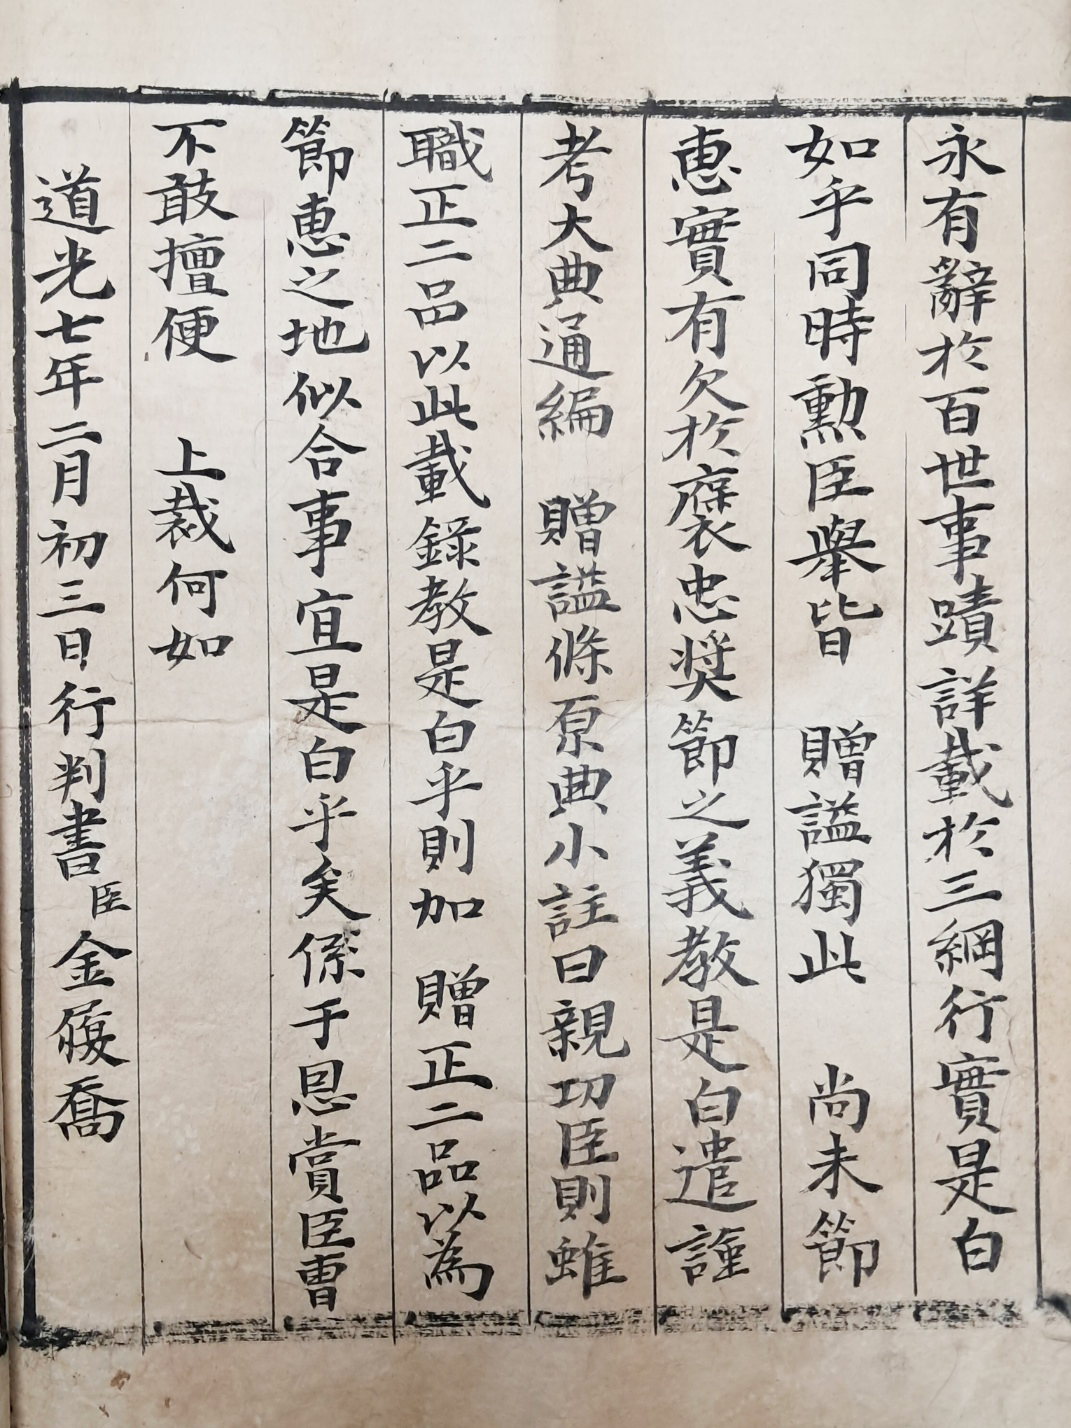 永有辭於百世事蹟詳載於三綱行實是白
如乎同時勳臣擧皆 贈諡獨此 尚未節
惠實有欠於褒忠奬節之義教是白遣謹
考大典通編 贈諡條原典小註曰親功臣則雖
職正二品以此載錄教是白乎則加 贈正二品以為
節惠之地似合事宜是白乎矣係于恩賞臣曹
不敢擅便 上裁何如
道光七年二月初三日行判書臣金履喬